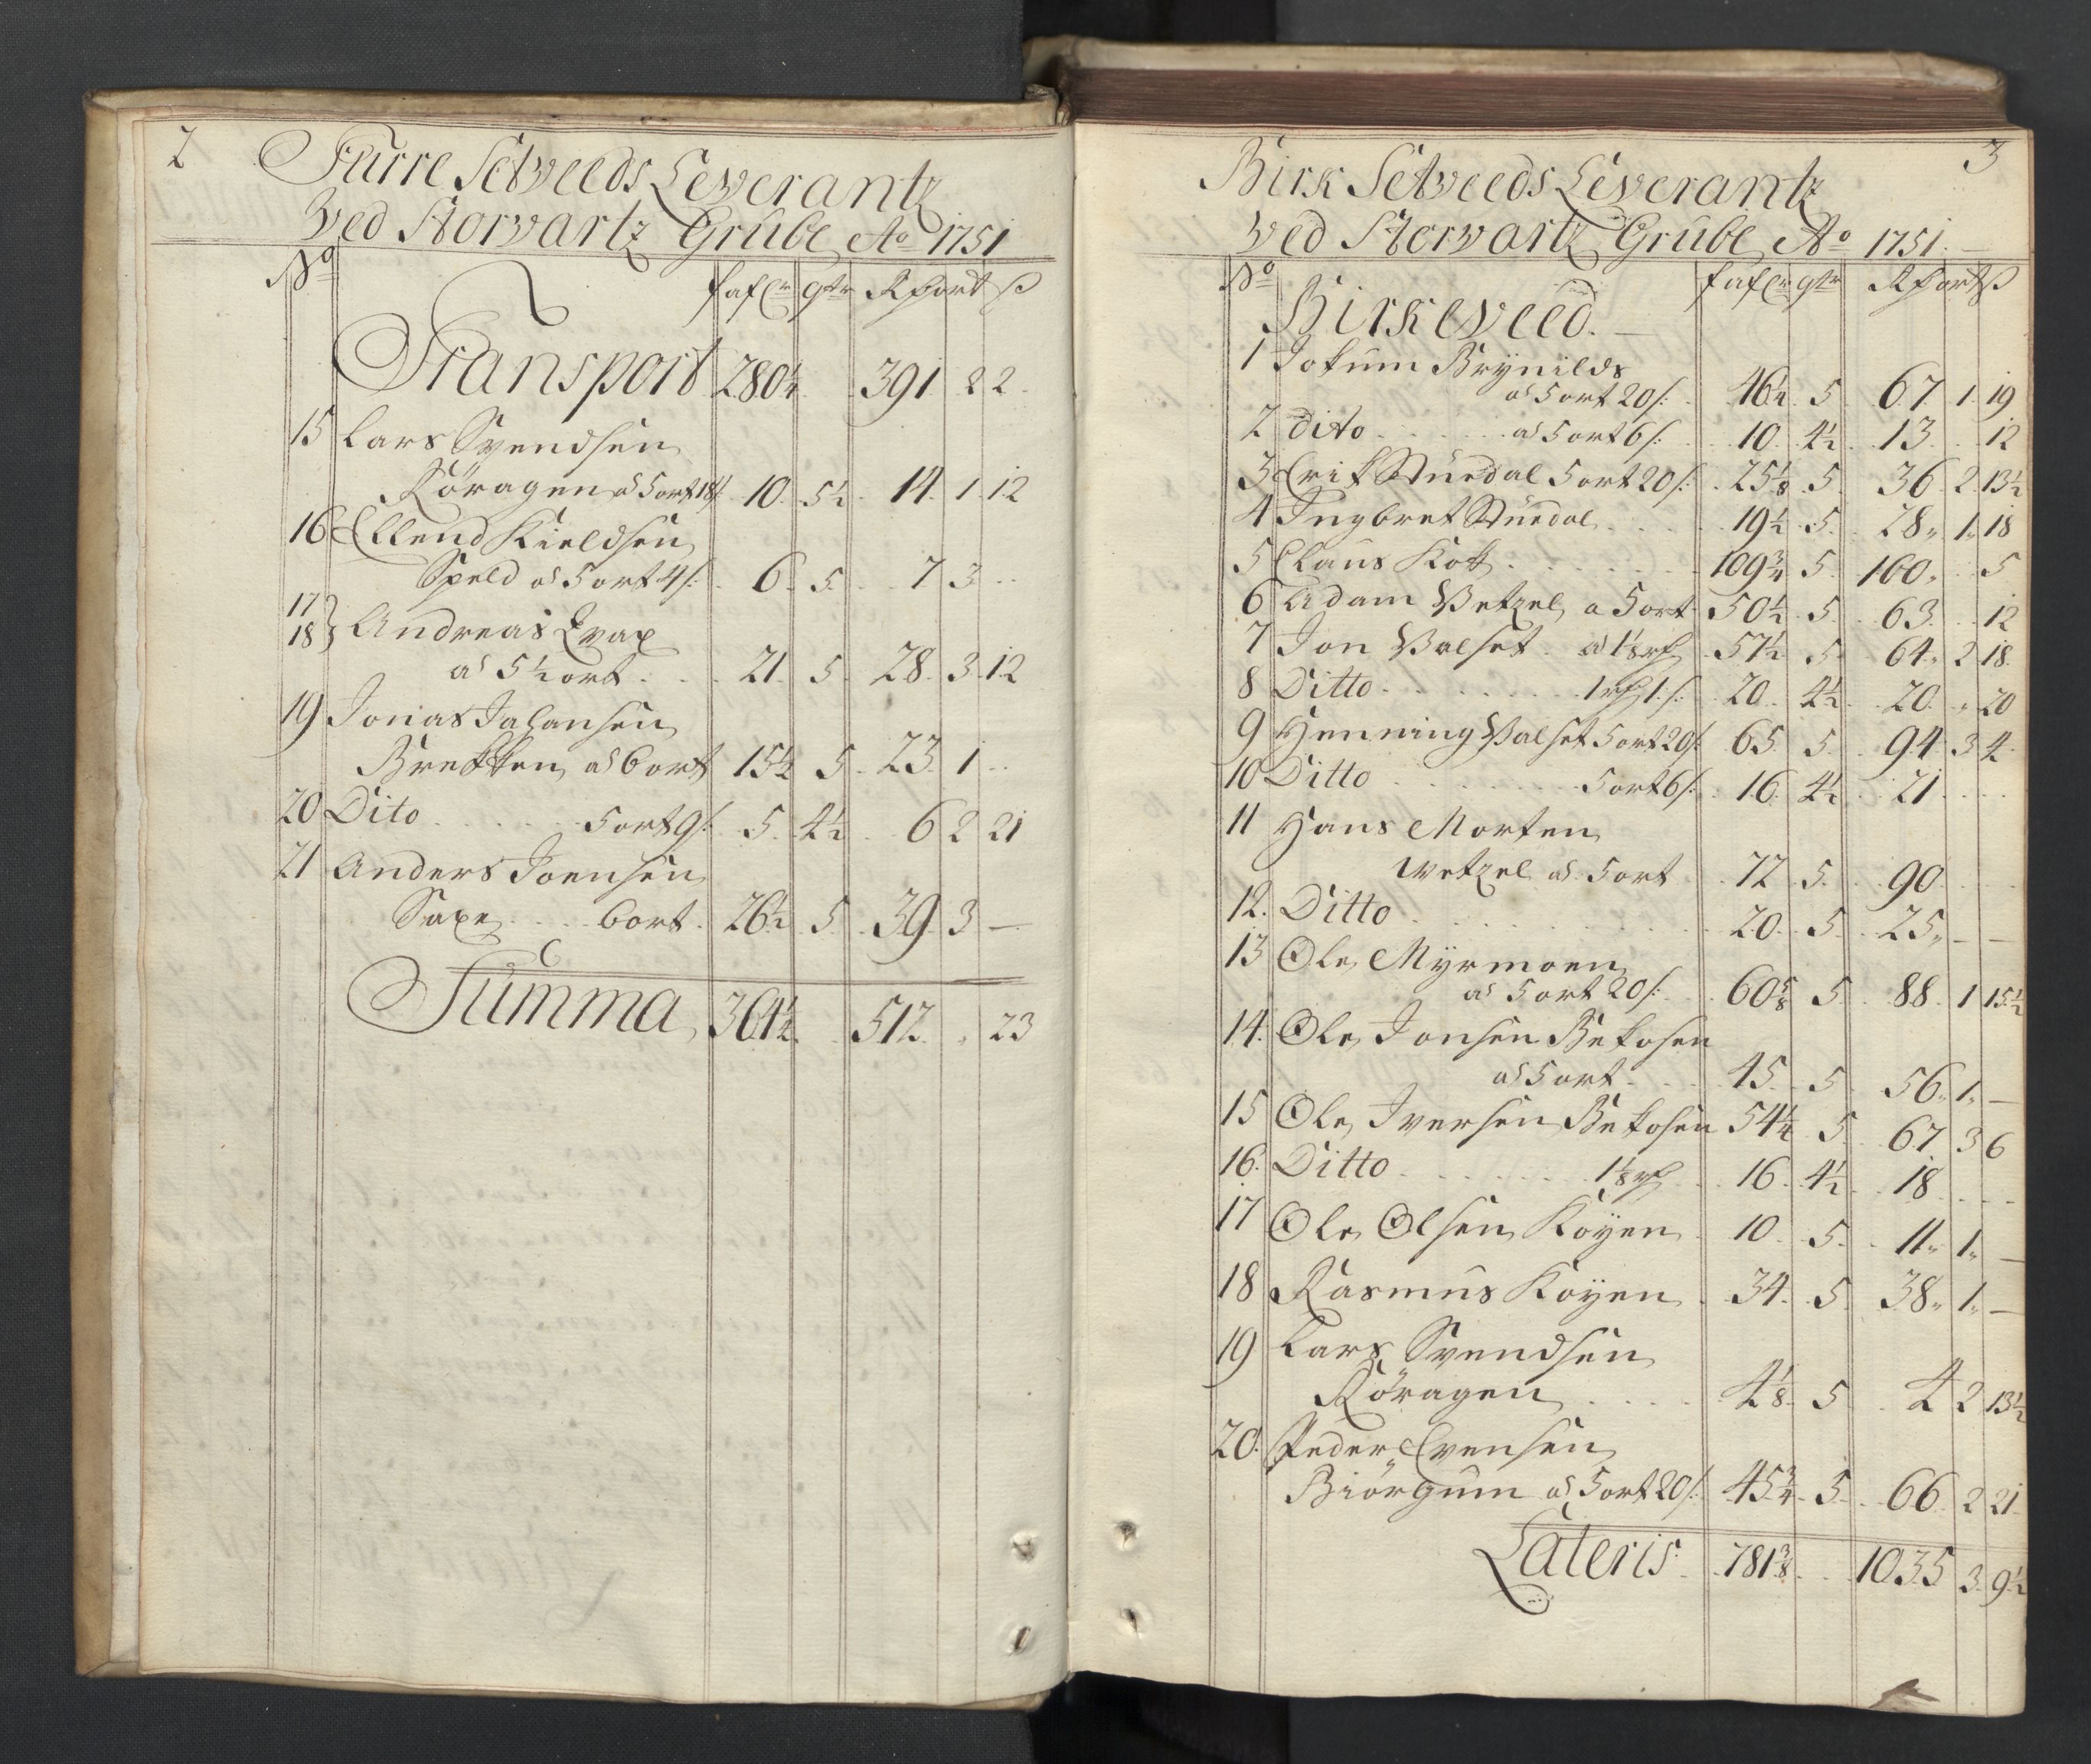 2
Furre Setveeds Leverantz
Ved Storvartz Grube Ao 1751
No fafler qtr R ort ß
Transport 280¼ 391 2 2
15 Lars Svendsen
Röragen a 5 ort 18/ 10 5½ 14 1 12
16 Ellend Kieldsen
Speld a 5 ort 4/: 6 5 7 3
17
18 Andreas Qvap
a 5½ ort 21 5 28 3 12
19 Jonas
Brekken a 6 ort 15½ 5 23 1
20 Dito 5 ort 9/: 5 4½ 6 2 21
21 Anders Joensen
Saxe 6 ort 26½ 5 39 3 —
Summa 364½ 512 23
3
Birk Setveeds Leverantz
ved Storvartz Grube Ao 1751
No fafler qtr R ort ß
Birkeveed.
1 Jokum Brynilds
a 5 ort 20/: 46¼ 5 67 1 19
2 dito a 5 ort 6/: 10 4½ 13 12
3 Erik 5 ort 20/: 25⅛ 5 36 2 13½
4 Ingbret 19½ 5 28 1 18
5 Claus Kott 109¾ 5 160 5
6 Adam Vetzel a 5 ort 50½ 5 63 12
7 Jon Valset a 1⅛ rd 57½ 5 64 2 18
8 Ditto 1 rd 1/: 20 4½ 20 20
9 Henning Valset 5 ort 20/: 65 5 94 3 4
10 Ditto 5 ort 6/: 16 4½ 21
11 Hans Morten
Wetzel a 5 ort 72 5 90
12. Ditto 20 5 25 — —
13 Ole Myrmoen
a 5 ort 20/: 60⅝ 5 88 1 15½
14. Ole Jonsen Bekosen
a 5 ort 45 5 56 1 —
15 Ole Iversen Bekosen 54¼ 5 67 3 6
16. Ditto 1⅛ rd 16 4½ 18
17 Ole Olsen Koyen 10 5 11 1 —
18 Rasmus Koyen 34 5 38 1 —
19 Lars Svendsen
Röragen 4⅛ 5 4 2 13½
20. Peder Evensen
Biörgum a 5 ort 20/: 45¾ 5 66 2 21
Lateris 781⅜ 1035 3 9½